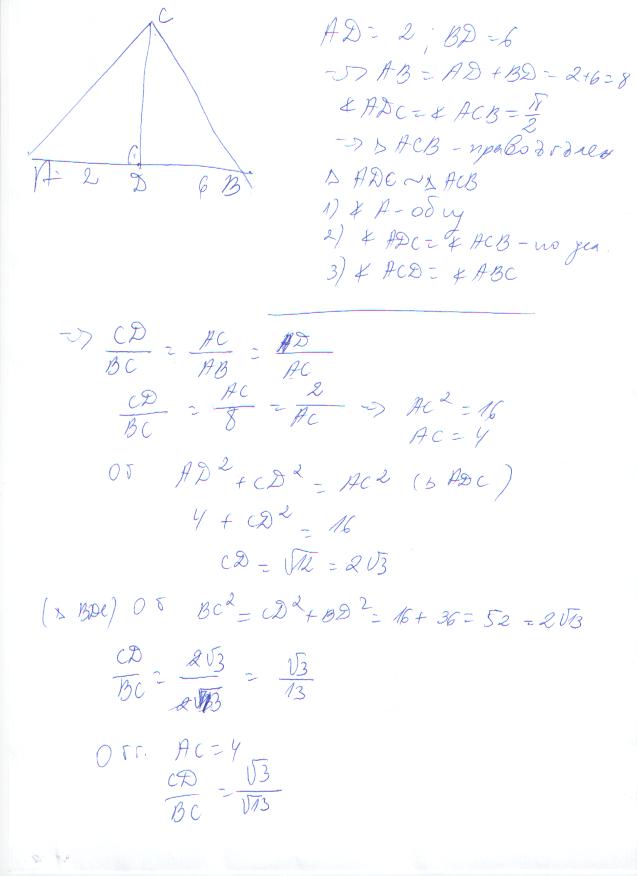 C
A 2 D 6 B
AD = 2 ; BD = 6
=> AB = AD + BD = 2+6 = 8
∢ ADC = ∢ ACB = π/2
=> △ ACB - правоъгълен
△ ADC ~ △ ACB
1) ∢ A - общ
2) ∢ ADC = ∢ ACB - по усл.
3) ∢ ACD = ∢ ABC
=> CD/BC = AC/AB = AD/AC
CD/BC = AC/8 = 2/AC => AC² = 16
AC = 4
От AD² + CD² = AC² (△ ADC)
4 + CD² = 16
CD = √12 = 2√3
(△ BDC) От BC² = CD² + BD² = 16 + 36 = 52 = 2√13
CD/BC = 2√3/2√13 = √3/13
Отг. AC = 4
CD/BC = √3/√13